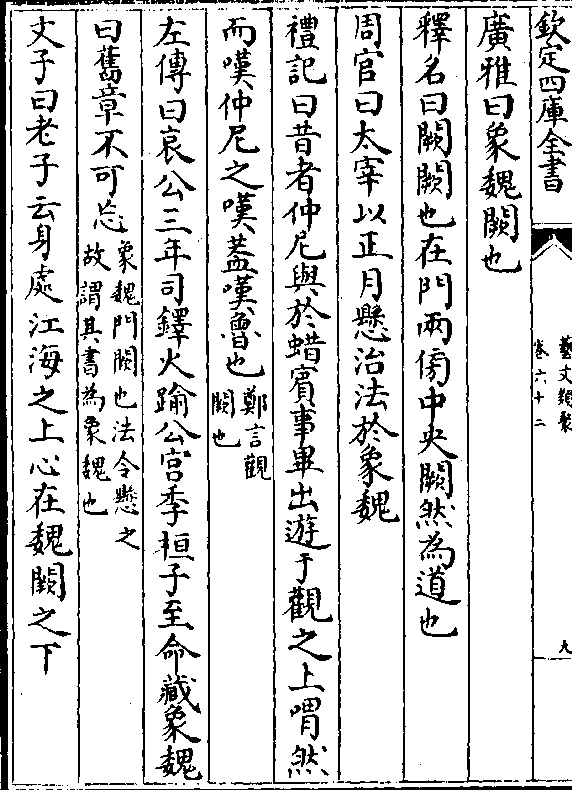 欽定四庫全書
藝文類聚
卷六十二
九
廣雅曰象魏闕也
釋名曰闕闕也在門兩傍中央闕然為道也
周官曰太宰以正月懸治法於象魏
禮記曰昔者仲尼與於蜡賓事畢出遊于觀之上喟然
而嘆仲尼之嘆蓋嘆魯也鄭言觀
闕也
左傳曰哀公三年司鐸火踰公宮季桓子至命藏象魏
曰舊章不可忘象魏門闕也法令懸之
故謂其書為象魏也
文子曰老子云身處江海之上心在魏闕之下